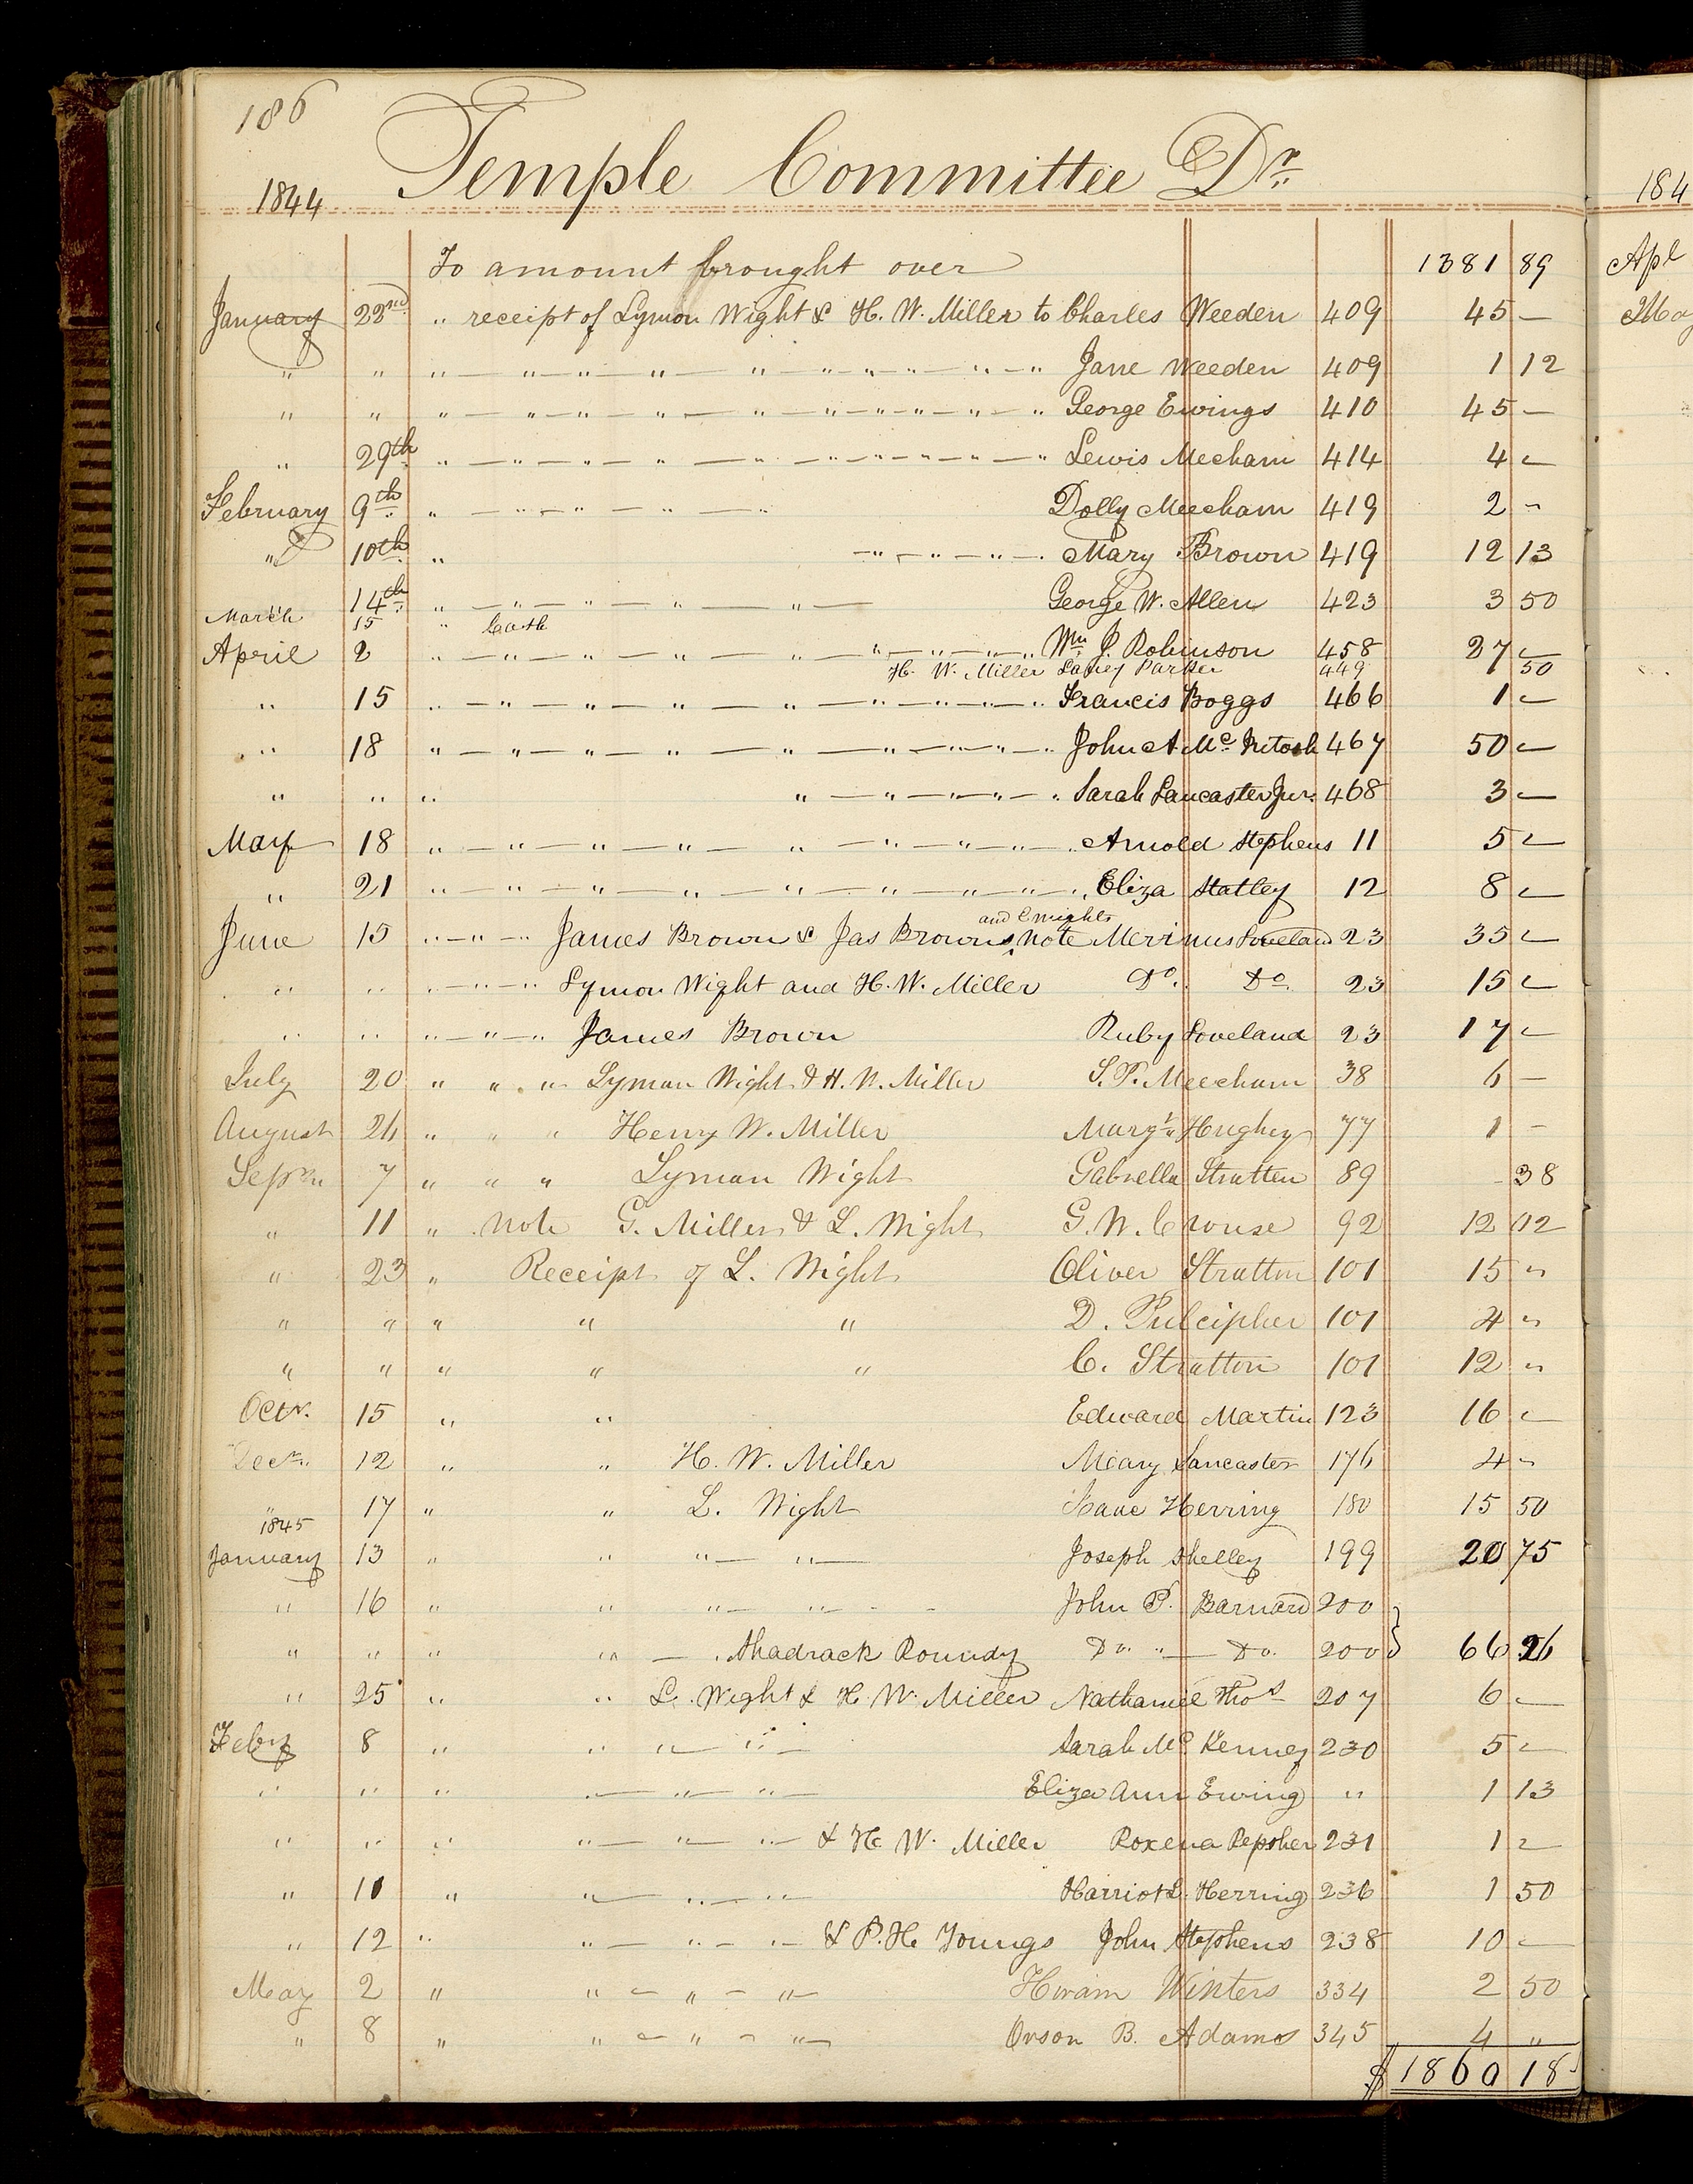 186
Temple Committee Dr.
1844
To amount brought over 1381 89
January 22nd " receipt of Lyman Wight & H. W. Miller to Charles Weeden 409 45 —
" " " — " — " — " — " — " — " — " — " — " Jane Weeden 409 1 12
" " " — " — " — " — " — " — " — " — " — " George Ewings 410 45 —
" 29th " — " — " — " — " — " — " — " — " — " Lewis Mecham 414 4 —
February 9th " — " — " — " Dolly Meecham 419 2 -
" 10th " — " — " — " — Mary Brown 419 12 13
" 14th " — " — " — " — " — George W. Allen 423 3 50
March 15 " Cash
April 2 " — " — " — " — " — " — " — " — " Wm J. Robinson 458 27 —
H. W. Miller Parker 449 50
" 15 " — " — " — " — " — " — " — " — " Francis Boggs 466 1 —
" 18 " — " — " — " — " — " — " — " — " John A Mc Intosh 467 50 —
" " " " — " — " — " — " Sarah Lancaster Jur. 468 3 —
May 18 " — " — " — " — " — " — " — " — " Arnold Stephens 11 5 —
" 21 " — " — " — " — " — " — " — " — " Eliza Statley 12 8 —
and Cnights
June 15 " — " — " James Brown & Jas Browns ^ note Merinus Loveland 23 35 —
" " " — " — " Lymon Wight and H. W. Miller Do. Do. 23 15 —
" " " — " — " James Brown Ruby Loveland 23 17 —
July 20 " " " Lyman Wight & H. W. Miller S. P. Meecham 38 6 —
August 26 " " " Henry W. Miller Margt. Hughey 77 1 —
7 " " " Lyman Wight Gabrella Stratten 89 - 38
" 11 " note G. Miller & L. Wight G. W. Crouse 92 12 12
" 23 " Receipt of L. Wight Oliver Stratton 101 15 "
" " " " " D. Pulcipher 101 4 "
" " " " " C. Stratton 101 12 "
Octr. 15 " " Edward Martin 123 16 —
Decr. 12 " " H. W. Miller Meary Lancaster 176 4 -
" 17 " " L. Wight Isaac Herring 180 15 50
1845
January 13 " " " — " — Joseph Shelley 199 20 75
" 16 " " " — " - - John P. Barnard 200 }
" " " " — . Shadrack Roundy Do. " — Do. 200 } 66 26
" 25 " " L. Wight & H. W. Miller Nathaniel Thos 207 6 —
Feby 8 " " " — " — Sarah Mc Kenney 230 5 —
" " " " — " — " — Eliza Ann Ewing " 1 13
" " " " — " — " — & H. W. Miller Roxena Repsher 231 1 —
" 11 " " — " — " — Harriot L. Herring 236 1 50
" 12 " " — " — " — & P. H. Youngs John Stephens 238 10 —
May 2 " " — " — " — Hiram Winters 334 2 50
" 8 " " — " — " — Orson B. Adams 345 4 "
$ 1860 18
184
Apl
May